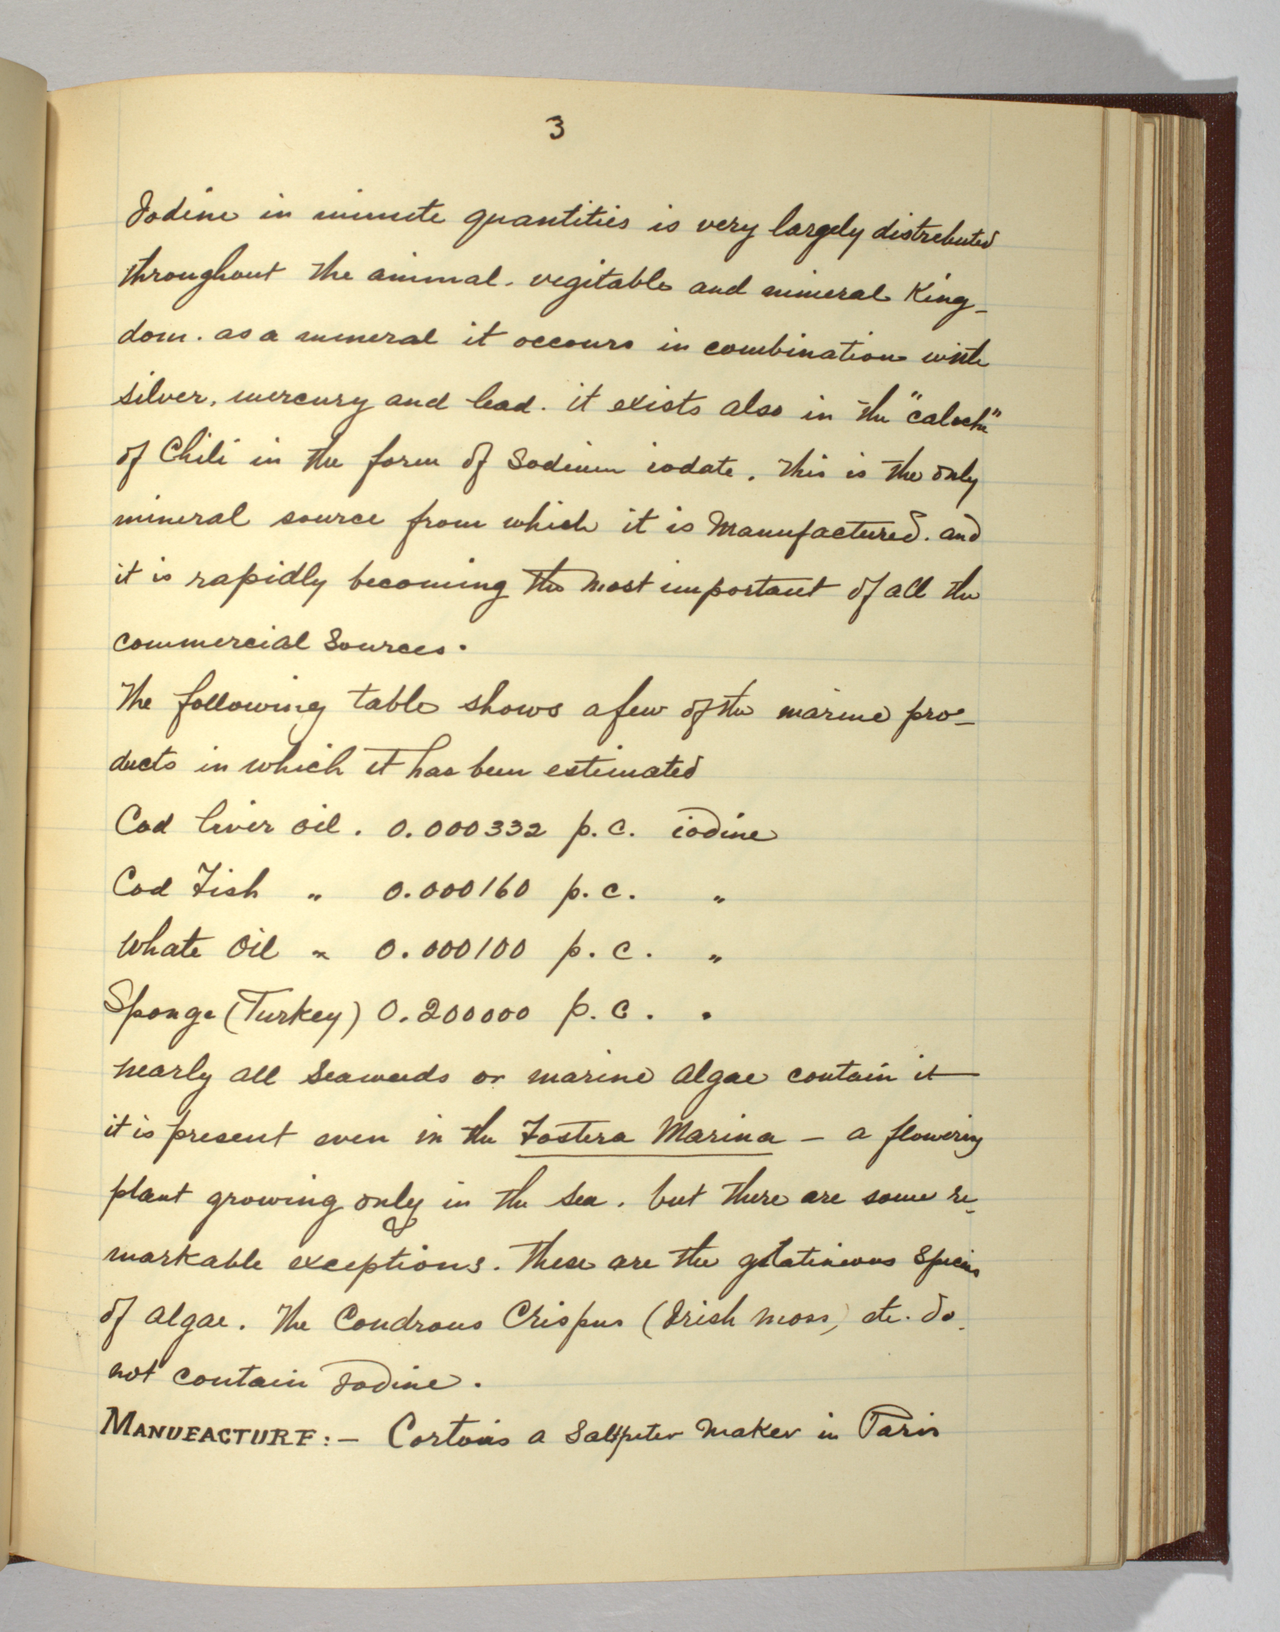 3
Iodine in minute quantities is very largely distrebuted
throughout the animal. vegitable and mineral King-
dom. as a mineral it occours in combination with
silver, mercury and lead. it exists also in the "caloche"
of Chili in the form of Sodium iodate. This is the only
mineral source from which it is Manufactured. and
it is rapidly becoming the most important of all the
commercial Sources.
The following table shows a few of the marine pro-
ducts in which it has been estimated
Cod liver oil. 0.000332 p.c. iodine
Cod Fish " 0.000160 p.c. "
Whate Oil " 0.000100 p.c. "
Sponge (Turkey) 0.200000 p.c. "
nearly all Seaweeds or marine Algae contain it
it is present even in the Fostera Marina – a flowering
plant growing only in the Sea. but there are some re-
markable exceptions. These are the gelatineous Species
of algae. The Condrous Crispus (Irish Moss) etc. do.
not contain Iodine.
MANUFACTURE:– Cortois a Saltpeter Maker in Paris